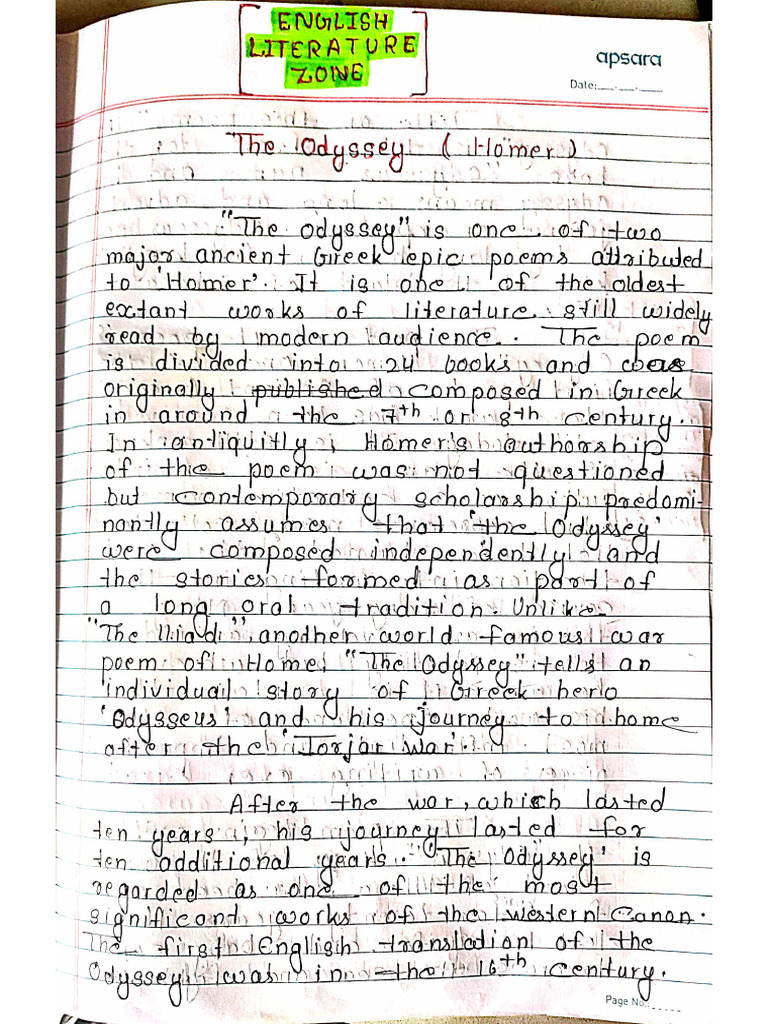 ENGLISH
LITERATURE
ZONE
apsara
Date:__.__.__
The Odyssey ( Homer )
"The odyssey" is one of two
major ancient Greek epic poems attributed
to 'Homer'. It is one of the oldest
extant works of literature still widely
read by modern audience. The poem
is divided into 24 books and
originally published composed in Greek
in around the 7th or 8th century.
In antiquitly, Homer's authorship
of the poem was not questioned
but contemporary scholarship predomi-
nantly assumes that 'the Odyssey'
were composed independently and
the stories formed as part of
a long oral tradition. Unlike
"The Iliad", another world famous war
poem of Home, "The Odyssey" tells an
individual story of Greek hero
'Odysseus' and his journey to home
after the 'Torjar War'.
After the war, which lasted
ten years, his journey lasted for
ten additional years. 'The Odyssey' is
regarded as one of the most
significant works of the Western Canon.
The first English translation of the
Odyssey was in the 16th century.
Page No.:.....